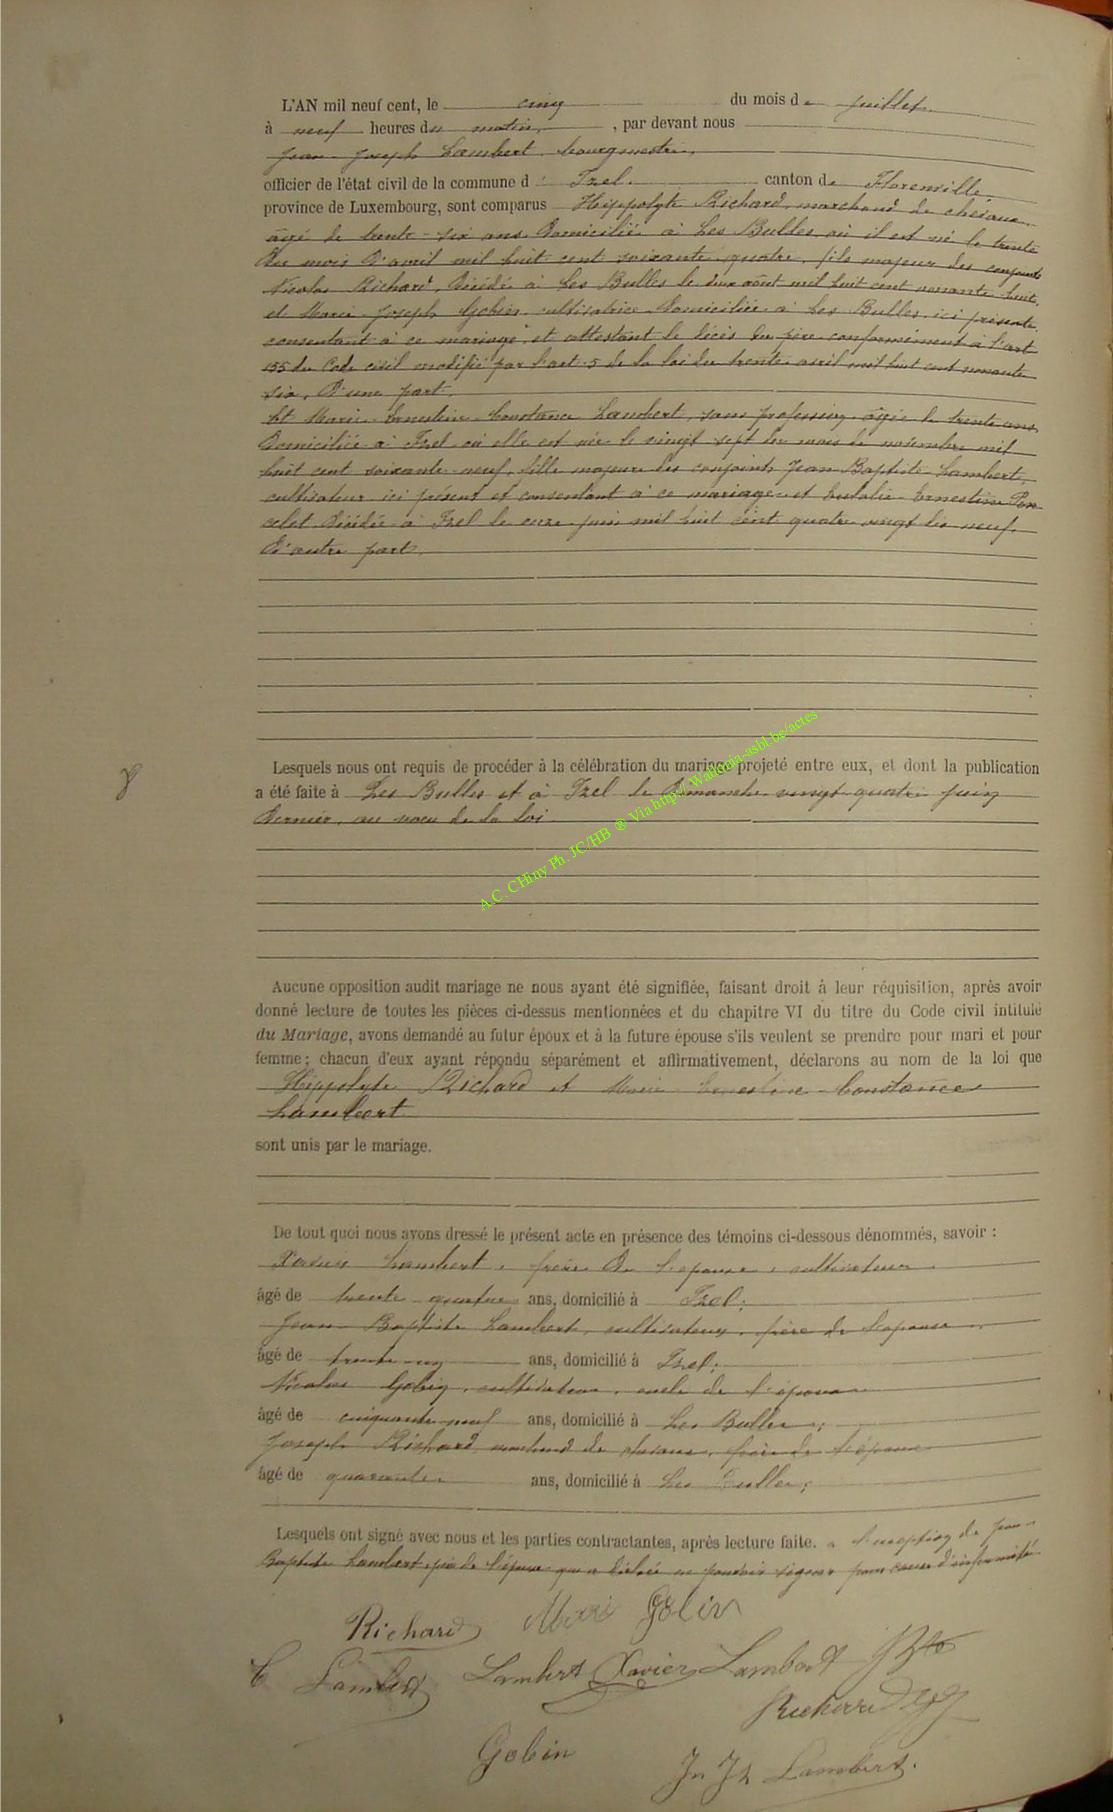 L'AN mil neuf cent, le cinq du mois de juillet
à neuf heures du matin, par devant nous
Jean-Joseph Lambert, bourgmestre,
officier de l'état civil de la commune d' Izel. canton de Florenville
province de Luxembourg, sont comparus Hippolyte Richard, marchand de chévaux,
âgé de trente-six ans domicilié à Les Bulles où il est né le trente
du mois d'avril mil huit cent soixante quatre, fils majeur des conjoints
Nicolas Richard, décédé à Les Bulles le deux août mil huit cent nonante huit,
et Marie Joseph Gobin cultivatrice domiciliée à Les Bulles, ici présente,
consentant à ce mariage et attestant le décès du père conformément à l'art
155 du Code civil modifié par l'art. 5 de la loi du trente avril mil huit cent nonante
six, d'une part.
Et Marie Ernestine Constance Lambert, sans profession, âgée de trente ans,
domiciliée à Izel où elle est née le vingt sept du mois de novembre mil
huit cent soixante-neuf, fille majeure des conjoints Jean Baptiste Lambert,
cultivateur ici présent et consentant à ce mariage et Eulalie Ernestine Pon
celet décédée à Izel le onze juin mil huit cent quatre vingt dix neuf.
D'autre part.
Lesquels nous ont requis de procéder à la célébration du mariage projeté entre eux, et dont la publication
a été faite à Les Bulles et à Izel le dimanche vingt quatre juin
dernier, au vœu de la loi
A.C. CHiny Ph. JC/HB ® Via http:// Wallonia-asbl.be/actes
Aucune opposition audit mariage ne nous ayant été signifiée, faisant droit à leur réquisition, après avoir
donné lecture de toutes les pièces ci-dessus mentionnées et du chapitre VI du titre du Code civil intitulé
du Mariage, avons demandé au futur époux et à la future épouse s'ils veulent se prendre pour mari et pour
femme; chacun d'eux ayant répondu séparément et affirmativement, déclarons au nom de la loi que
Hippolyte Richard et Marie Ernestine Constance
Lambert
sont unis par le mariage.
De tout quoi nous avons dressé le présent acte en présence des témoins ci-dessous dénommés, savoir :
Xavier Lambert, frère de l'épouse, cultivateur
âgé de trente quatre ans, domicilié à Izel;
Jean Baptiste Lambert, cultivateur, frère de l'épouse
âgé de trente ans, domicilié à Izel;
Nicolas Gobin, cultivateur, oncle de l'époux
âgé de cinquante neuf ans, domicilié à Les Bulles;
Joseph Richard, marchand de chevaux, frère de l'époux
âgé de quarante ans, domicilié à Les Bulles;
Lesquels ont signé avec nous et les parties contractantes, après lecture faite. à l'exception de Jean
Baptiste Lambert, père de l'épouse qui a déclaré ne pouvoir signer pour cause d'infirmité
Richard Marie Gobin
C Lambert Lambert Xavier Lambert J Bte
Richard
Gobin Jn Jh Lambert.